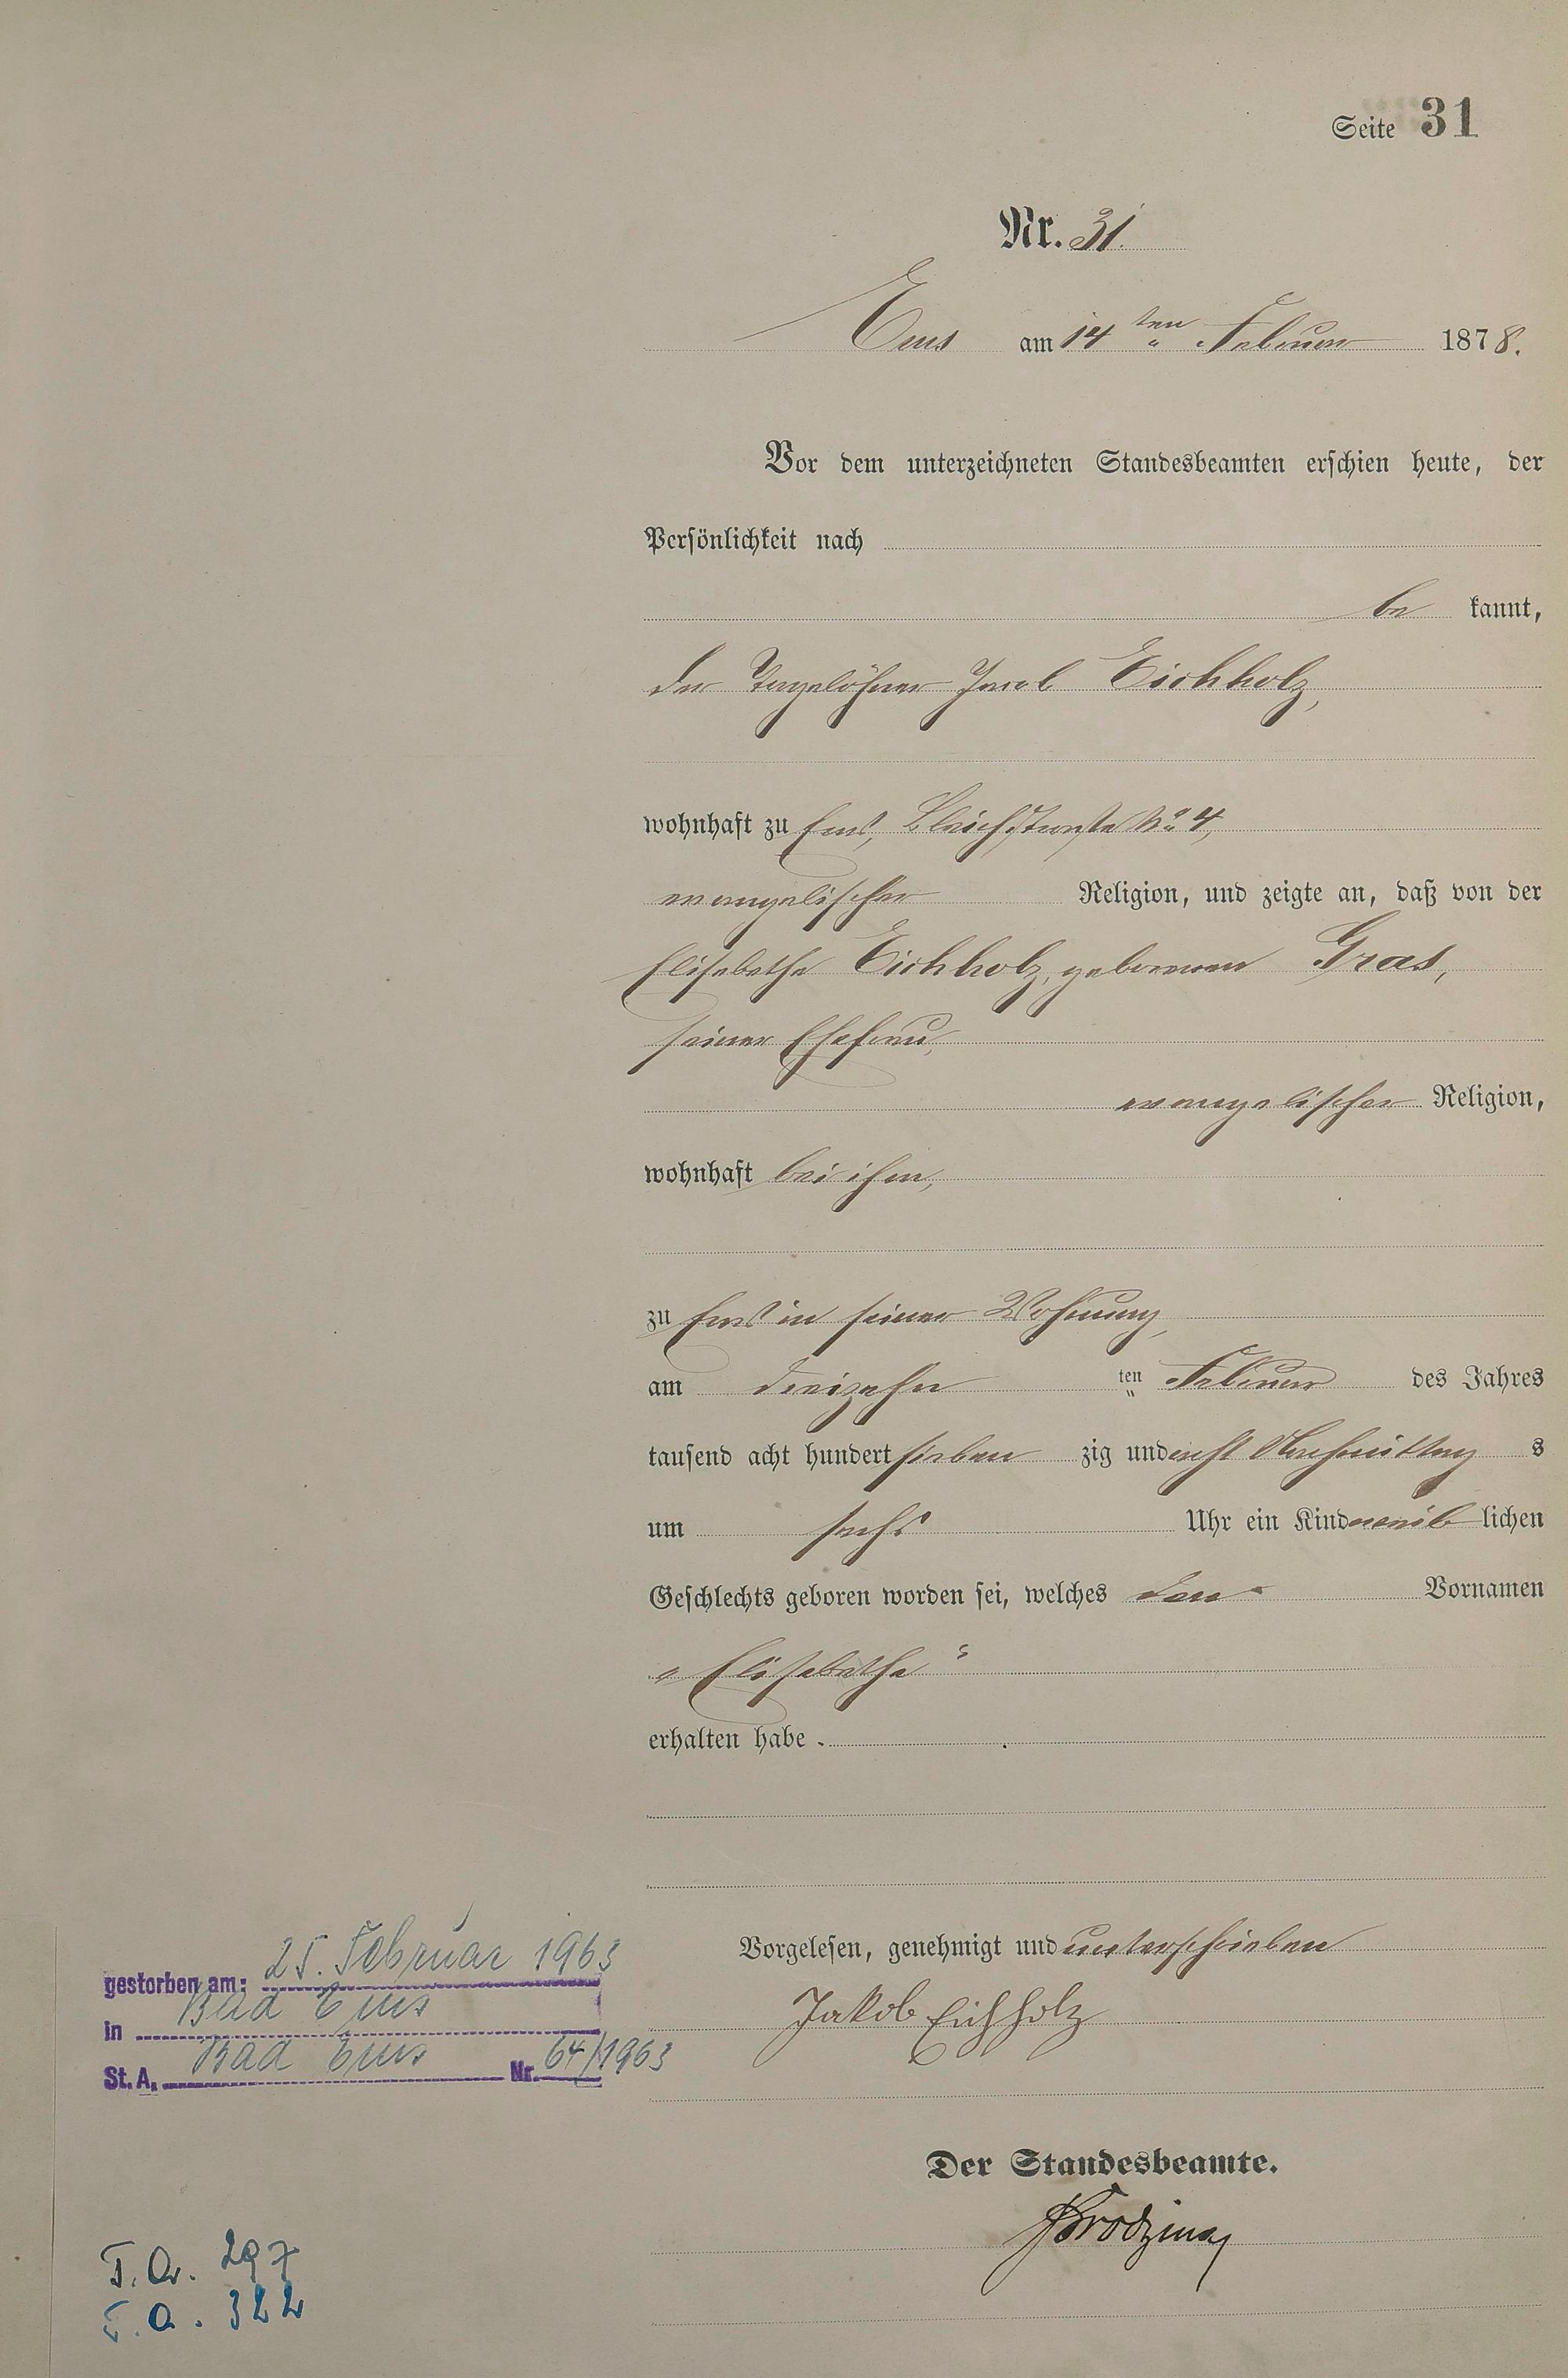 Seite 31
Nr. 31.
Ems am 14ten Februar 1878.
Vor dem unterzeichneten Standesbeamten erschien heute, der
Persönlichkeit nach
be kannt,
der Tagelöhner Jacob Eichholz,
wohnhaft zu Ems, Bleichstraße No 4,
evangelischer Religion, und zeigte an, daß von der
Elisabetha Eichholz, geborenen Gras,
seiner Ehefrau,
evangelischer Religion,
wohnhaft bei ihm,
zu Ems in seiner Wohnung,
am dreizehn ten Februar des Jahres
tausend acht hundert sieben zig und acht Nachmittag s
um sechs Uhr ein Kind weib lichen
Geschlechts geboren worden sei, welches den Vornamen
„Elisabetha“
erhalten habe.
Vorgelesen, genehmigt und unterschrieben
Jakob Eichholz
Der Standesbeamte.
gestorben am: 25. Februar 1963
in Bad Ems
St. A. Bad Ems Nr. 64/1963
297
322